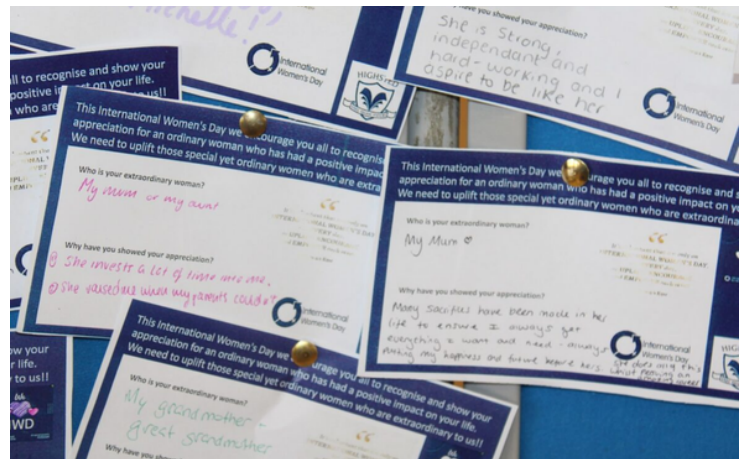 Michelle!
International
Women's Day
HIGHS
She is strong,
independant and
hard-working and I
aspire to be like her
have you showed your appreciation?
International
Women's Day
all to recognise and show your
positive
on your life.
who are
to us!!
This International Women's Day we encourage you all to recognise
appreciation for an ordinary woman who has had a positive impac
We need to uplift those special yet ordinary women who are extra
Who is your extraordinary woman?
My mum or my aunt
Why have you showed your appreciation?
She invests a lot of time into me.
She raised me when my parents couldn't
International
Women's Day
This International Women's Day we encourage you all to recognise and s
appreciation for an ordinary woman who has had a positive impact on yo
We need to uplift those special yet ordinary women who are extraordina
Who is your extraordinary woman?
My Mum
Why have you showed your appreciation?
Many sacrifices have been made in her
life to ensure I always get
everything I want and need - always
putting my happiness and future before hers. She does only this
whilst
an
International
Women's Day
HIG
This International Women's Day we encourage you all to recognise and show your
appreciation for an ordinary woman who has had a positive impact on your life.
We need to uplift those special yet ordinary women who are extraordinary to us!!
Who is your extraordinary woman?
My grandmother +
great grandmother
Why have you showed your appreciation?
ow your
r life.
to us!!
IWD